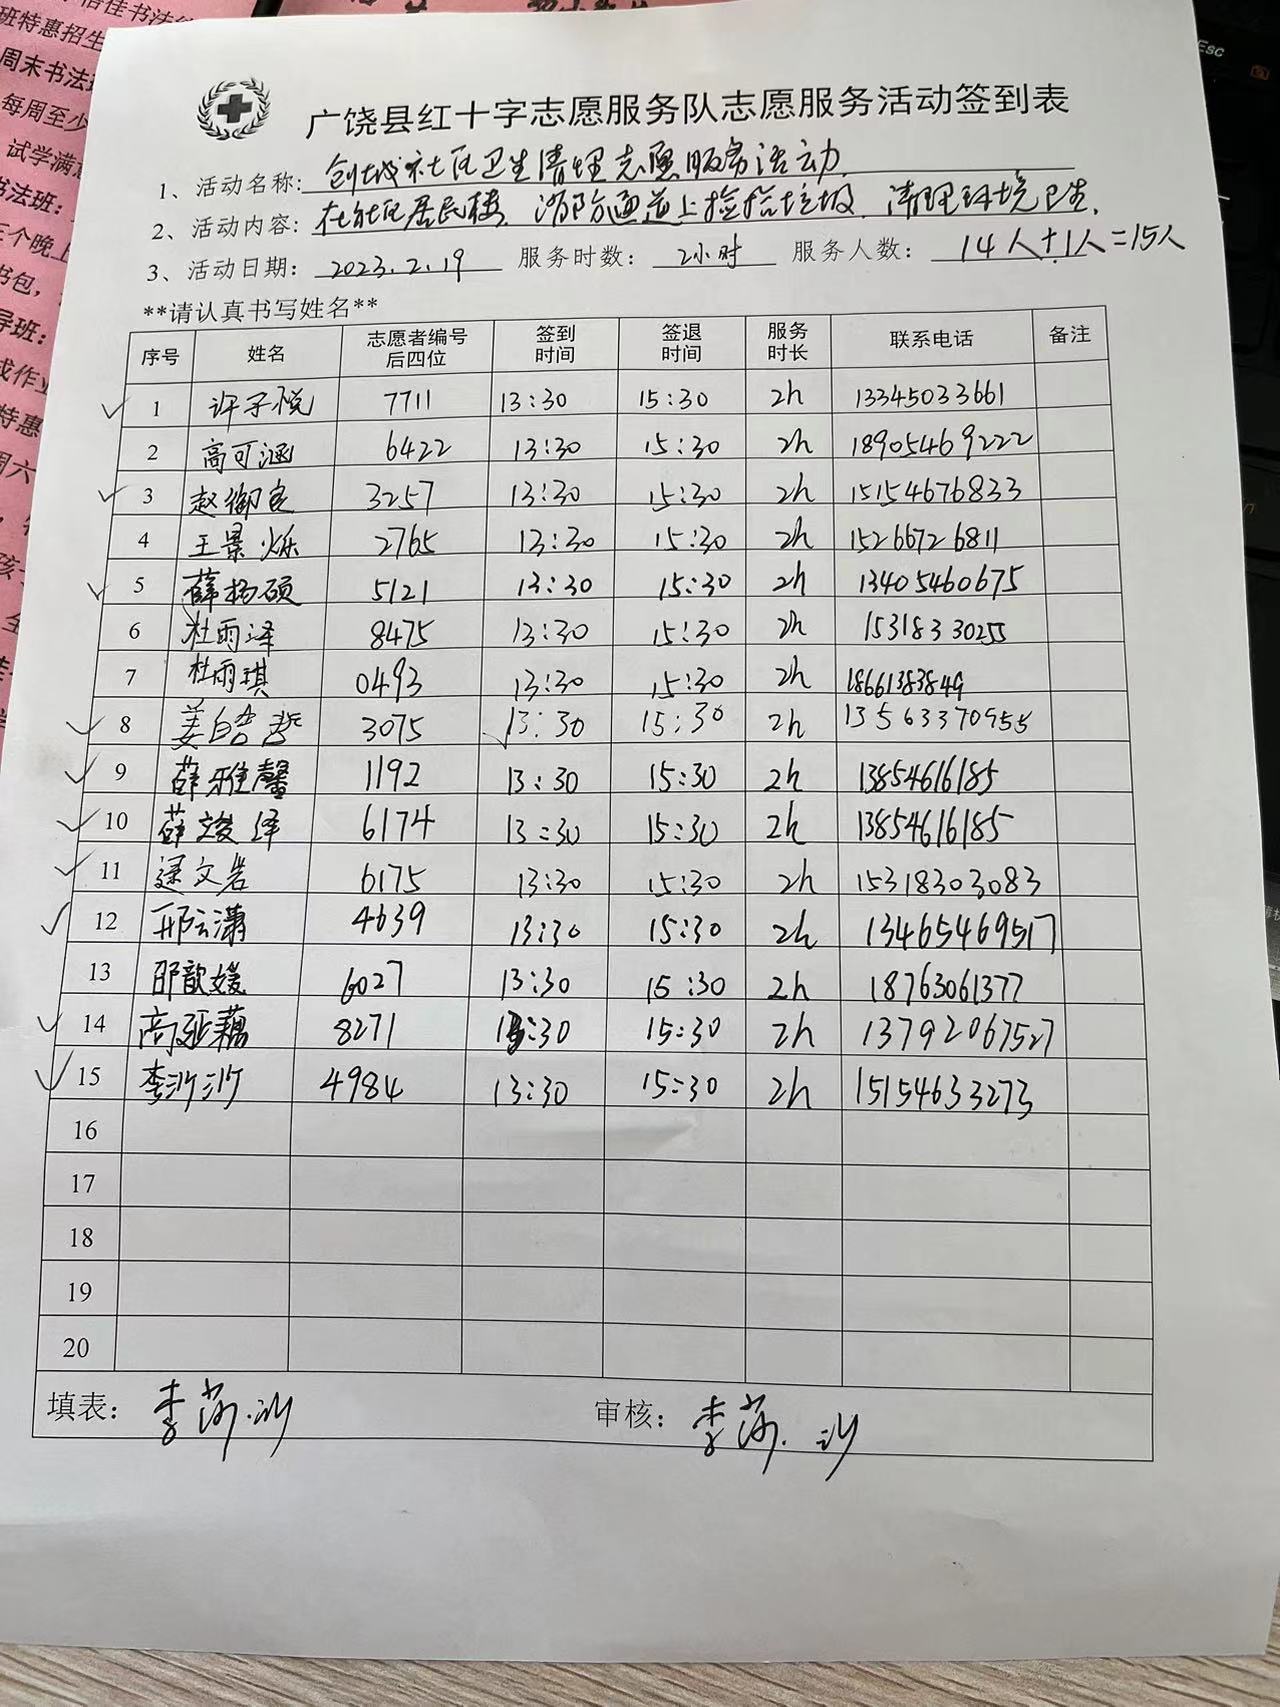 班特惠招生
周末书法班
每周至少
试学满意
书法班:
三个晚上
书包,
导班:
成作业
特惠
周六
Esc
广饶县红十字志愿服务队志愿服务活动签到表
1、活动名称: 创城社区卫生清理志愿服务活动
2、活动内容: 在社区居民楼、消防通道上捡拾垃圾、清理环境卫生.
3、活动日期: 2023.2.19 服务时数: 2小时 服务人数: 14人+1人=15人
**请认真书写姓名**
序号 姓名 志愿者编号后四位 签到时间 签退时间 服务时长 联系电话 备注
1 许子悦 7711 13:30 15:30 2h 13345033661
2 高可涵 6422 13:30 15:30 2h 18905469222
3 赵御良 3257 13:30 15:30 2h 15154676833
4 王景烁 2765 13:30 15:30 2h 15266726811
5 薛杨硕 5121 13:30 15:30 2h 13405460675
6 杜雨泽 8475 13:30 15:30 2h 15318330255
7 杜雨琪 0493 13:30 15:30 2h 18661383849
8 姜皓哲 3075 13:30 15:30 2h 13563370955
9 薛雅馨 1192 13:30 15:30 2h 13854616185
10 薛竣泽 6174 13:30 15:30 2h 13854616185
11 文岩 6175 13:30 15:30 2h 15318303083
12 邢云潇 4639 13:30 15:30 2h 13465469517
13 邵歆媛 6027 13:30 15:30 2h 18763061377
14 高延藕 8271 13:30 15:30 2h 13792067527
15 李沙沙 4984 13:30 15:30 2h 15154633273
16
17
18
19
20
填表: 李莎沙 审核: 李莎沙